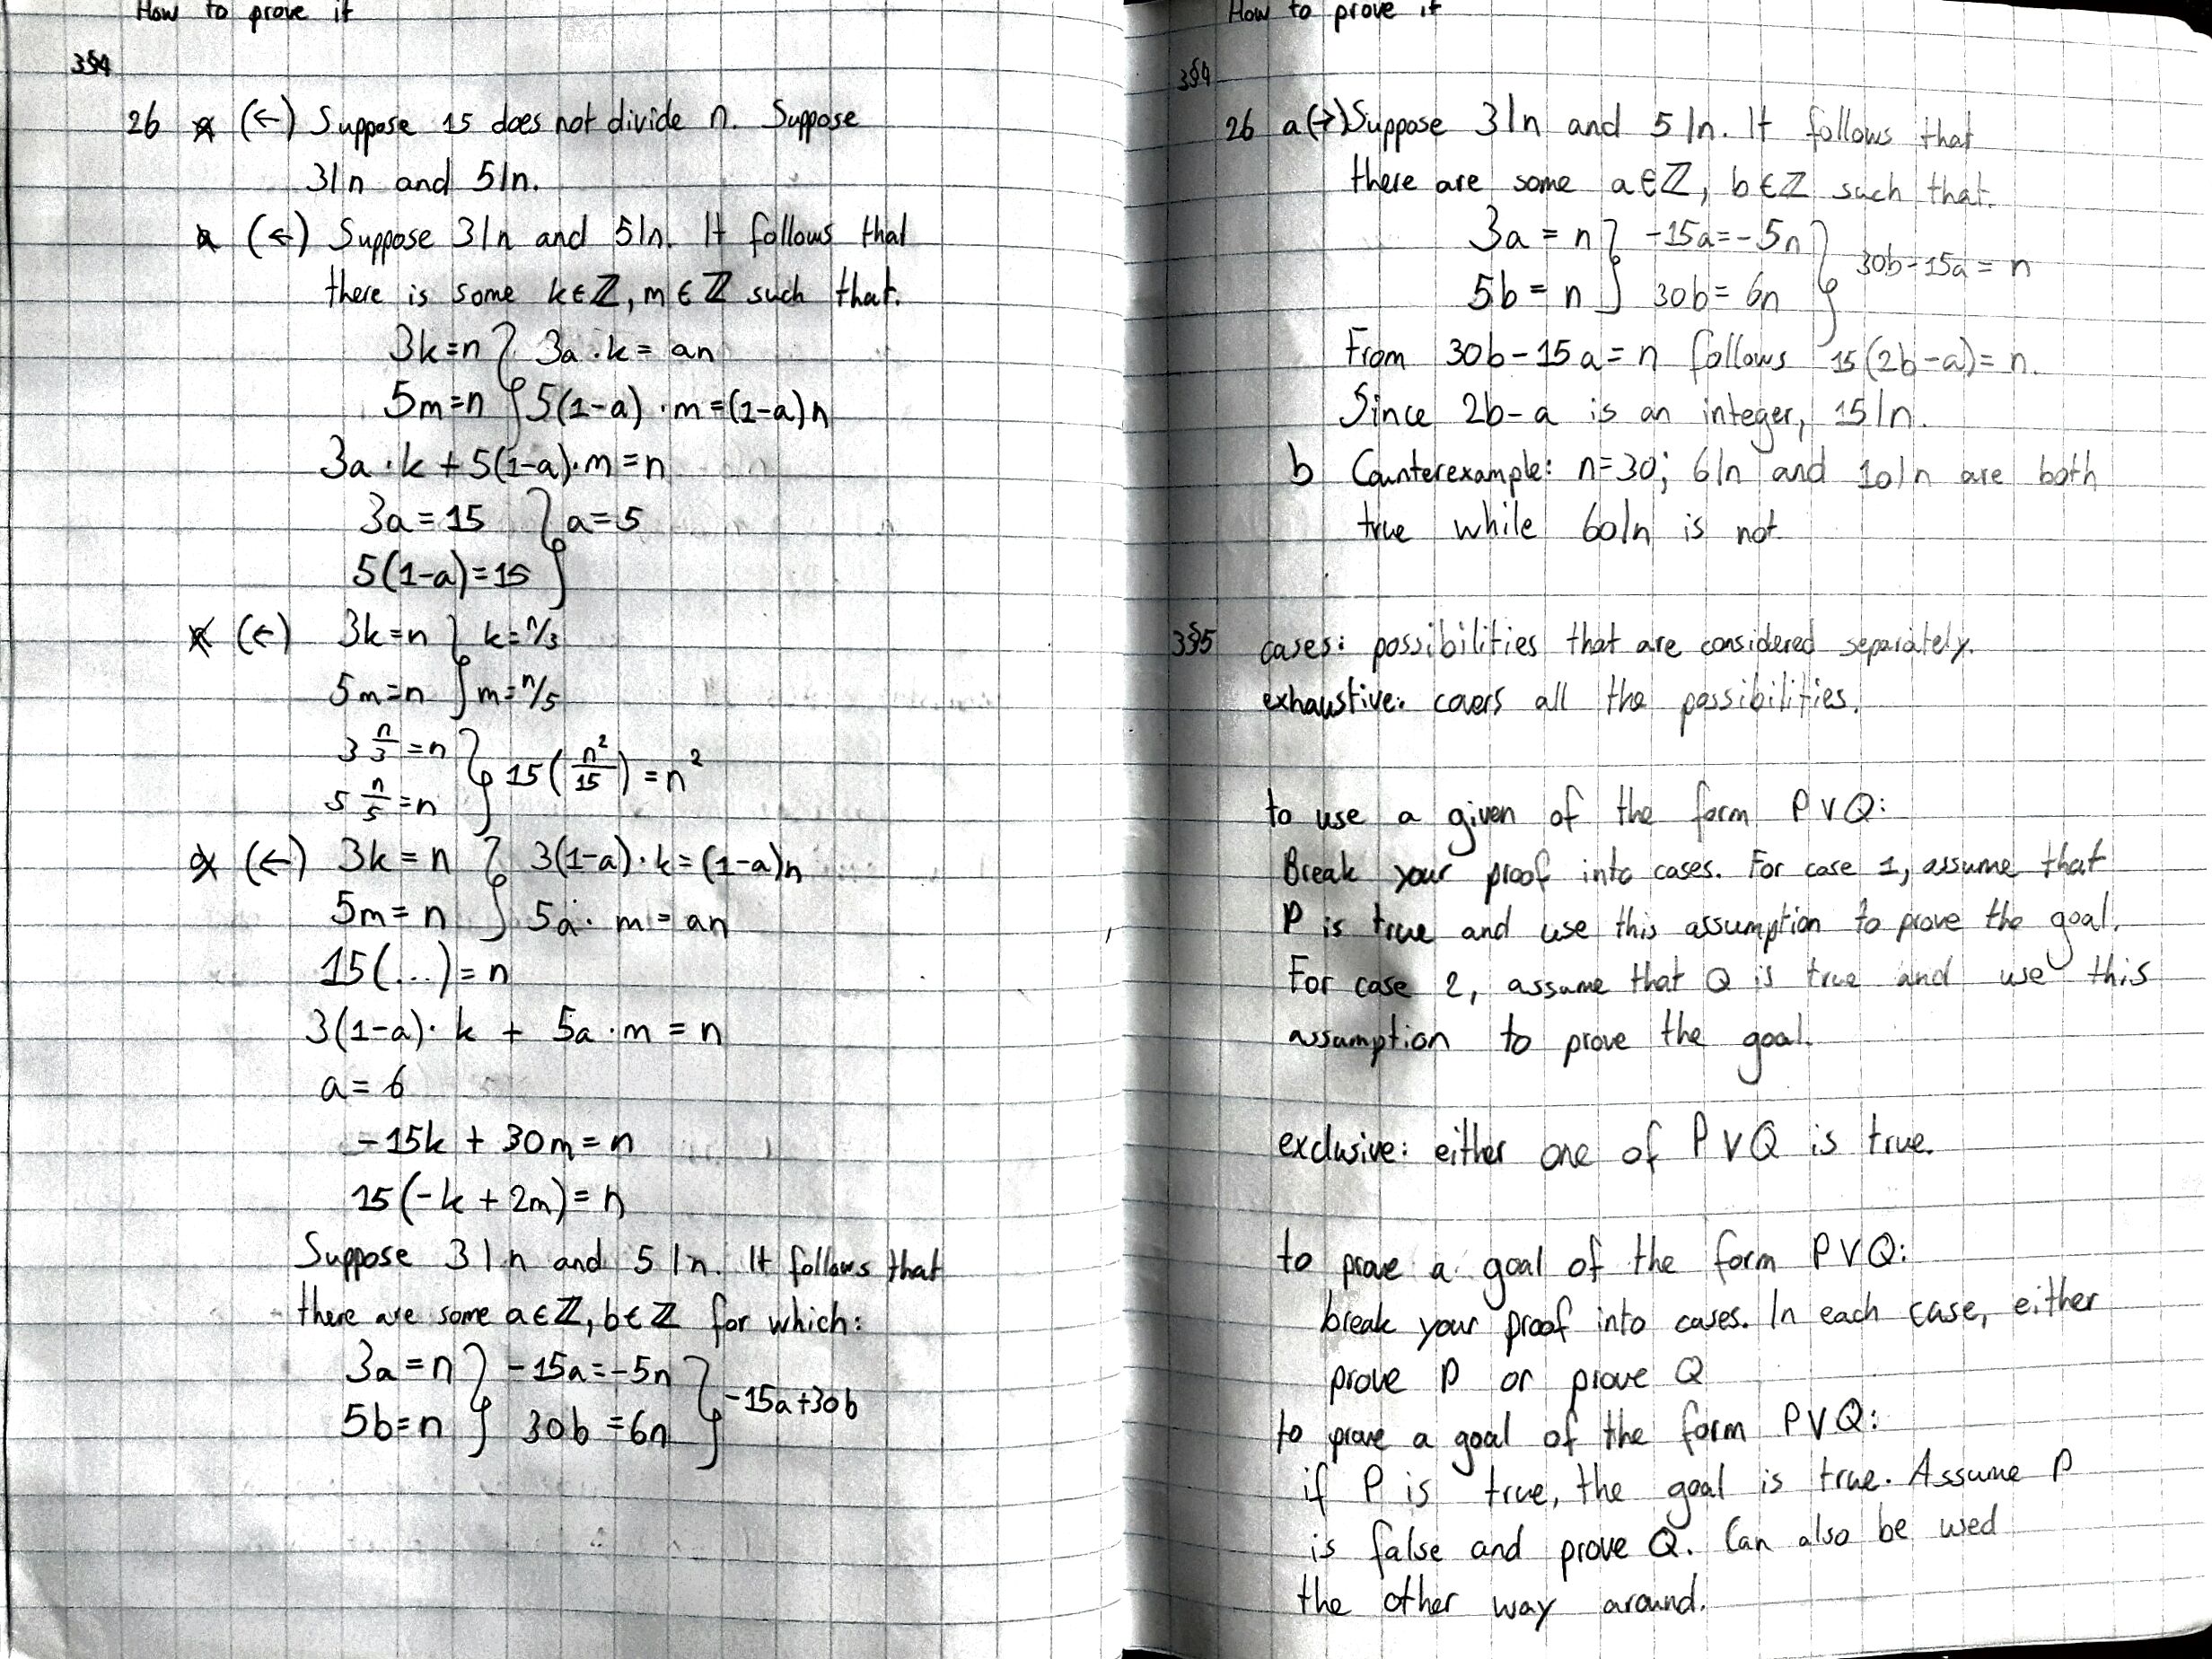 How to prove it
3§4
26 a (←) Suppose 15 does not divide n. Suppose
3|n and 5|n.
a (←) Suppose 3|n and 5|n. It follows that
there is some k∈ℤ, m∈ℤ such that.
3k=n } 3a·k = an
5m=n } 5(1-a)·m=(1-a)n
3a·k + 5(1-a)·m = n
3a = 15 } a=5
5(1-a)=15 }
a (←) 3k=n } k=n/3
5m=n } m=n/5
3 n/3 = n } 15(n²/15) = n²
5 n/5 = n }
a (←) 3k = n } 3(1-a)·k = (1-a)n
5m = n } 5a·m = an
15(...) = n
3(1-a)·k + 5a·m = n
a = 6
-15k + 30m = n
15(-k + 2m) = n
Suppose 3|n and 5|n. It follows that
there are some a∈ℤ, b∈ℤ for which:
3a = n } -15a=-5n } -15a+30b
5b=n } 30b = 6n }
How to prove it
3§4
26 a(→) Suppose 3|n and 5|n. It follows that
there are some a∈ℤ, b∈ℤ such that.
3a = n } -15a=-5n } 30b-15a = n
5b = n } 30b = 6n }
From 30b-15a = n follows 15(2b-a) = n.
Since 2b-a is an integer, 15|n.
b Counterexample: n=30; 6|n and 10|n are both
true while 60|n is not.
3§5 cases: possibilities that are considered separately.
exhaustive: covers all the possibilities.
to use a given of the form P∨Q:
Break your proof into cases. For case 1, assume that
P is true and use this assumption to prove the goal.
For case 2, assume that Q is true and use this
assumption to prove the goal.
exclusive: either one of P∨Q is true.
to prove a goal of the form P∨Q:
break your proof into cases. In each case, either
prove P or prove Q
to prove a goal of the form P∨Q:
if P is true, the goal is true. Assume P
is false and prove Q. Can also be used
the other way around.